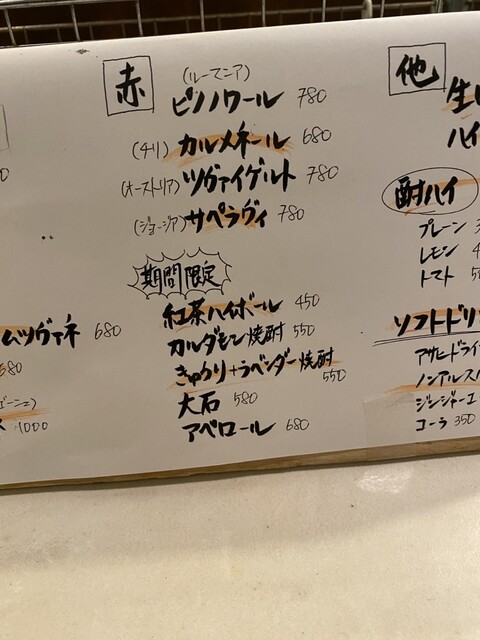 赤
(ルーマニア)
ピノノワール 780
(チリ) カルメネール 680
(オーストリア) ツヴァイゲルト 780
(ジョージア) サペラヴィ 780
期間限定
紅茶ハイボール 450
カルダモン焼酎 550
きゅうり+ラベンダー焼酎
550
大石 580
アペロール 680
ムツヴァネ 680
680
1000
他
生
ハイ
酎ハイ
プレーン
レモン
トマト
ソフトドリ
アサヒドライ
ノンアルスパ
ジンジャーエ
コーラ 350